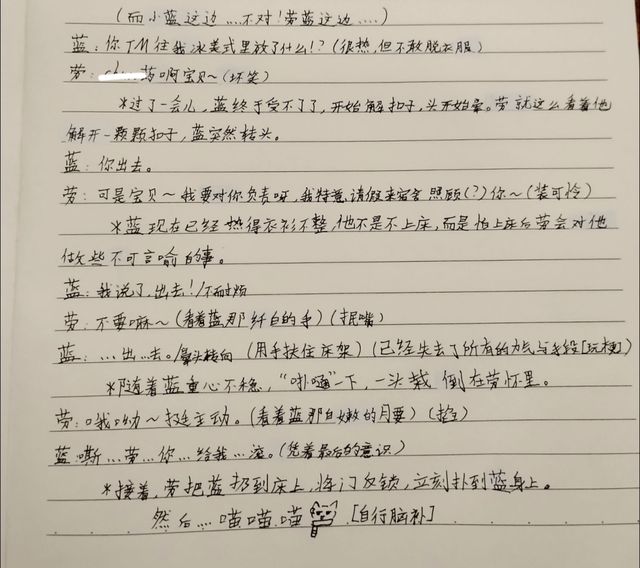 (而小蓝这边....不对!劳蓝这边....)
蓝:你TM往我冰美式里放了什么!?(很热,但不敢脱衣服)
劳:药啊宝贝~(坏笑)
*过了一会儿,蓝终于受不了了,开始解扣子,头开始晕。劳就这么看着他
解开一颗颗扣子,蓝突然转头。
蓝:你出去。
劳:可是宝贝~我要对你负责呀,我特意请假来宿舍照顾(?)你~(装可怜)
*蓝现在已经热得衣衫不整,他不是不上床,而是怕上床后劳会对他
做些不可言喻的事。
蓝:我说了,出去!/不耐烦
劳:不要嘛~(看着蓝那纤白的手)(抿嘴)
蓝:...出...去。/晕头转向(用手扶住床架)(已经失去了所有的力气与手段[玩梗])
*随着蓝重心不稳,“扑通”一下,一头栽倒在劳怀里。
劳:哦呦~挺主动。(看着蓝那白嫩的月要)(掐)
蓝:嘶...劳...你...给我...滚。(凭着最后的意识)
*接着,劳把蓝扔到床上,将门反锁,立刻扑到蓝身上。
然后....喵喵喵[自行脑补]